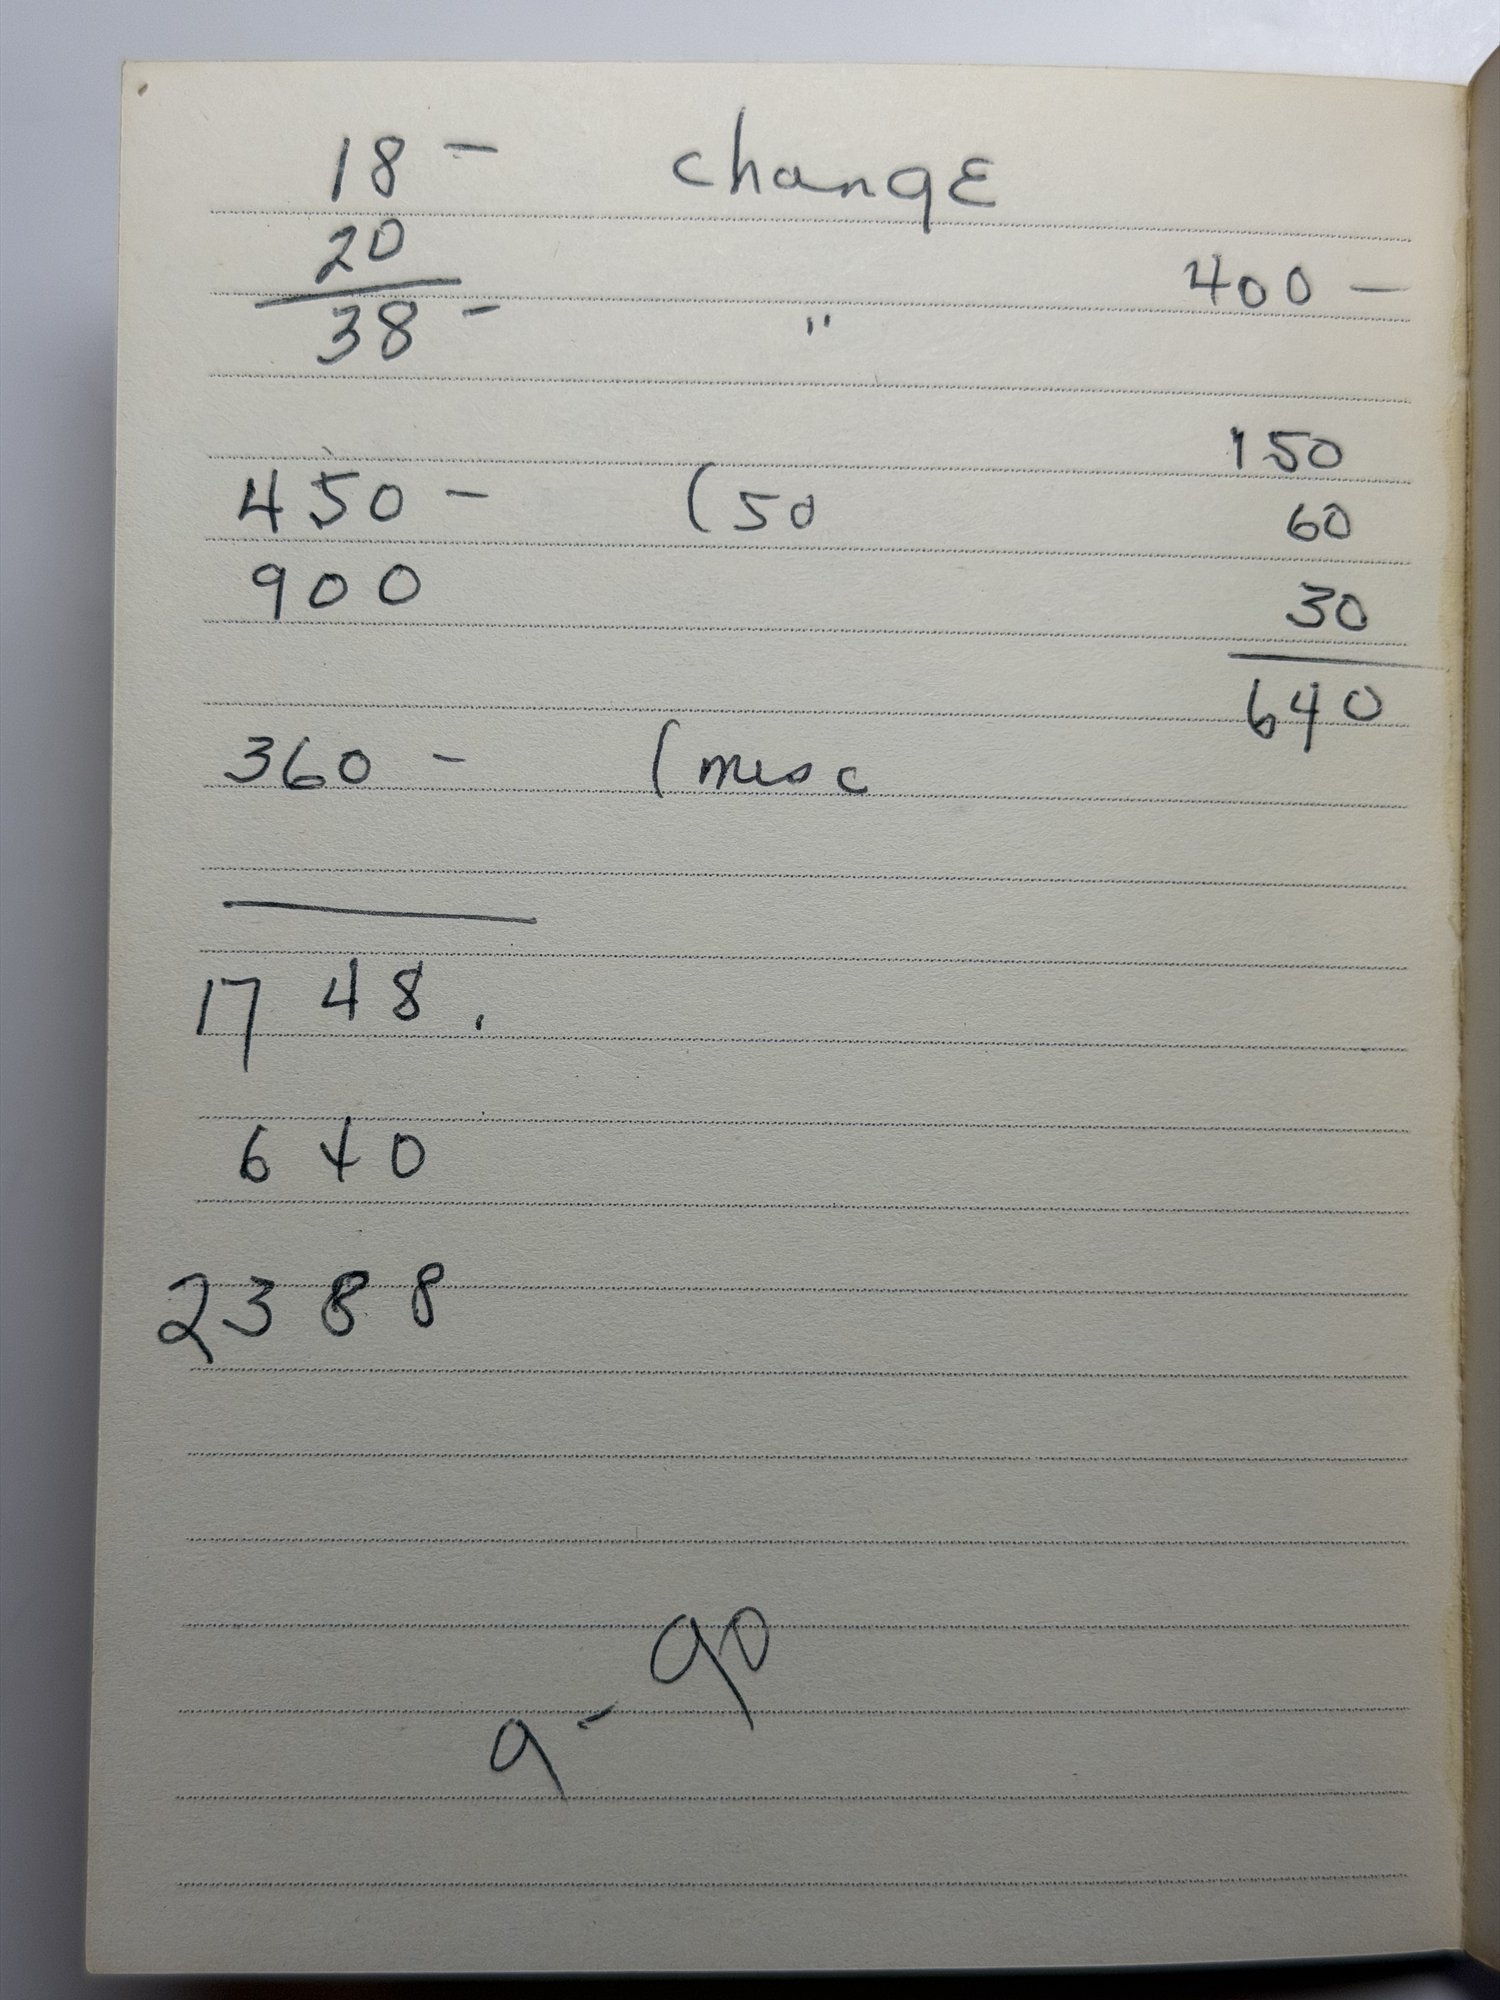 18 - change
20
400 -
38 - "
150
450 - (50
60
900
30
640
360 - (misc
1748.
640
2388
9 - 90